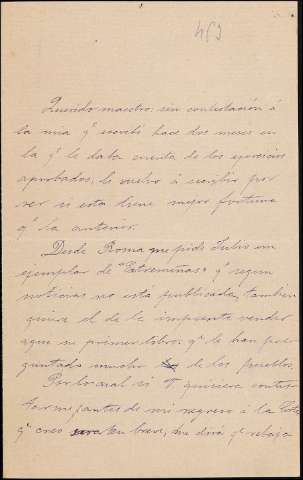 453
Querido maestro: sin contestación á
la mia qᵉ escribí hace dos meses en
la qᵉ le daba cuenta de los ejercicios
aprobados, le vuelvo á escribir por
ver si esta tiene mejor fortuna
qᵉ la anterior.
Desde Roma me pide Julio un
ejemplar de "Extremeñas" qᵉ segun
noticias no está publicada, tambien
quiere el de la imprenta vender
aqui su primer libro, qᵉ le han pre-
guntado mucho de los pueblos.
Por lo cual si V quisiera contes-
tarme antes de mi regreso á la Corte
qᵉ creo será en breve, me dirá qᵉ rebaja